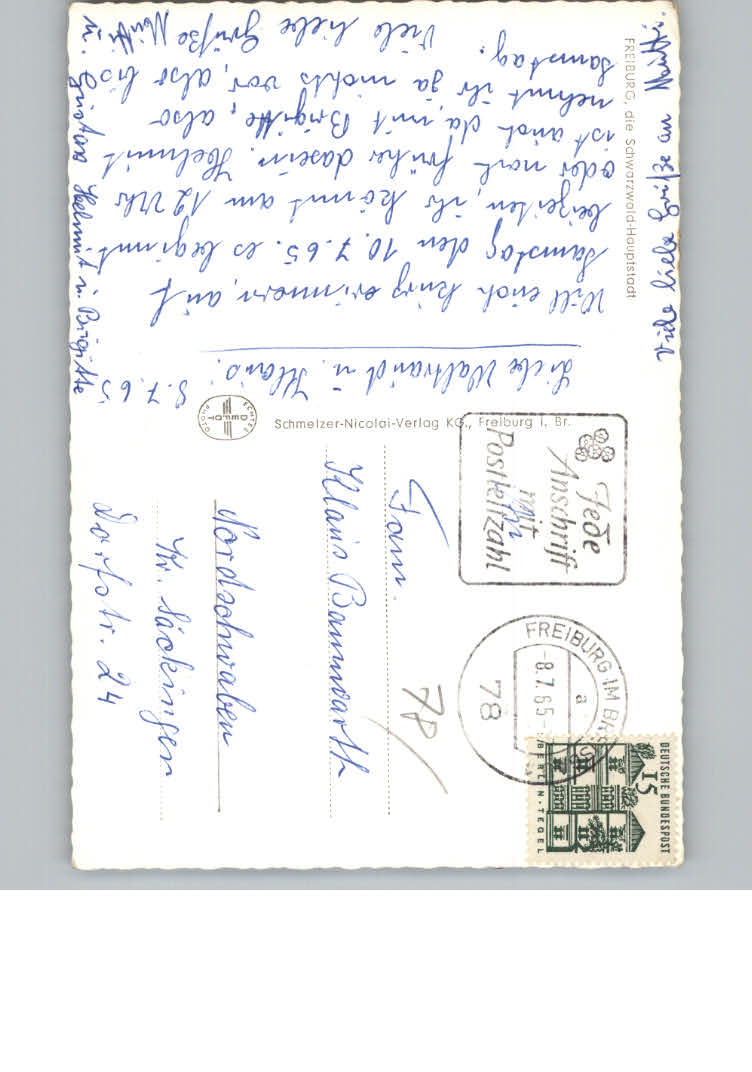 FREIBURG, die Schwarzwald-Hauptstadt
8.7.65
Liebe Waltraud u. Klaus.
Will euch kurz erinnern, auf
Samstag den 10.7.65. es beginnt
beizeiten, ihr könnt um 12 Uhr
oder noch früher dasein. Helmut
ist auch da, mit Brigitte, also
nehmt ihr ja nichts vor, also bis
Samstag.
Viele liebe Grüße Mutti
u. Gustav Helmut u. Brigitte
Viele liebe Grüße an
Schmelzer-Nicolai-Verlag KG., Freiburg i. Br.
ECHTES
PHOTO
Jede
Anschrift
mit
Postleitzahl
FREIBURG IM BR
a
-8.7.65-
78
DEUTSCHE BUNDESPOST
15
BERLIN-TEGEL
78
Fam.
Klaus Bannwarth
Nordschwaben
Kr. Säckingen
Dorfstr. 24